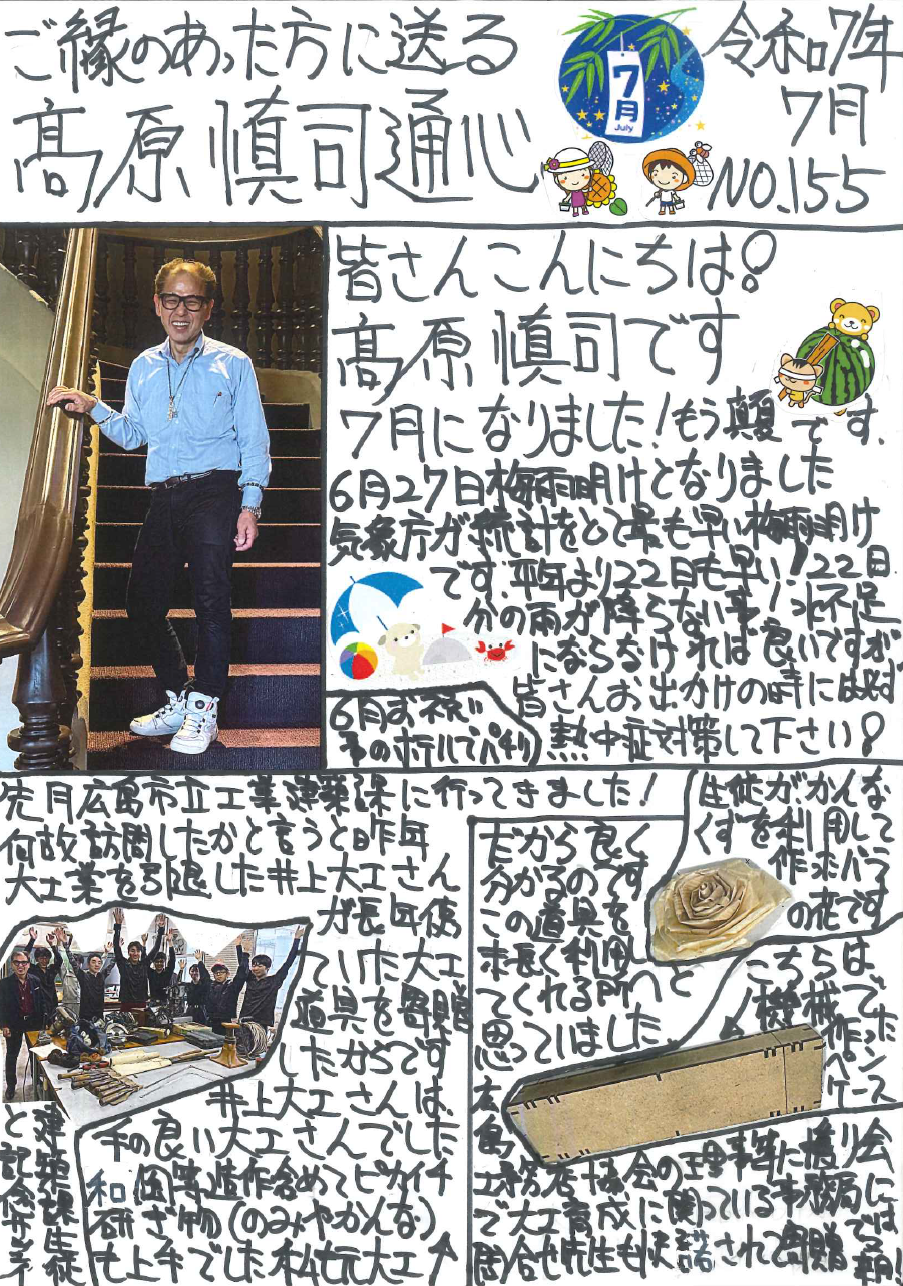 ご縁のあった方に送る
髙原慎司通心
7月
July
令和7年
7月
NO.155
皆さんこんにちは!
髙原慎司です
7月になりました!もう真夏です、
6月27日梅雨明けとなりました
気象庁が統計をとって最も早い梅雨明け
です.平年より22日も早い!22日
分の雨が降らない事!水不足
にならなければ良いですが
皆さんお出かけの時には必ず
熱中症対策して下さい!
6月お祝い
ホテルでパチリ
先月広島市立工業建築課に行ってきました!
何故訪問したかと言うと昨年
大工業を引退した井上大工さん
が長年使
っていた大工
道具を寄贈
したからです
井上大工さんは、
手の良い大工さんでした
造作含めてピカイチ
研ぎ物(のみやかんな)
も上手でした私も元大工↑
建築課生徒
と記念
だから良く
分かるのです
この道具を
末長く利用し
てくれる所へと
思っていました
工務店協会の理事
で大工育成に関っている事務局に
問合せ先生も快諾されて寄贈
生徒がかんな
くずを利用して
作ったバラ
の花です
こちらは
機械で
作った
ペン
ケース